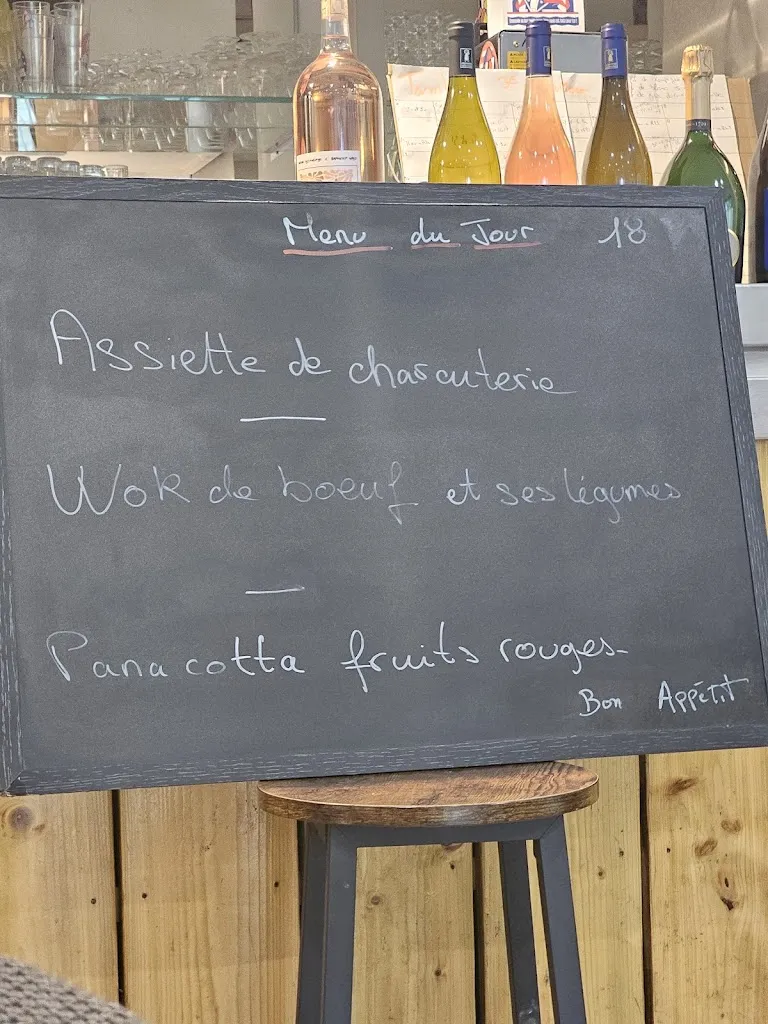 Menu du Jour 18
Assiette de charcuterie
Wok de boeuf et ses légumes
Pana cotta fruits rouges
Bon Appétit